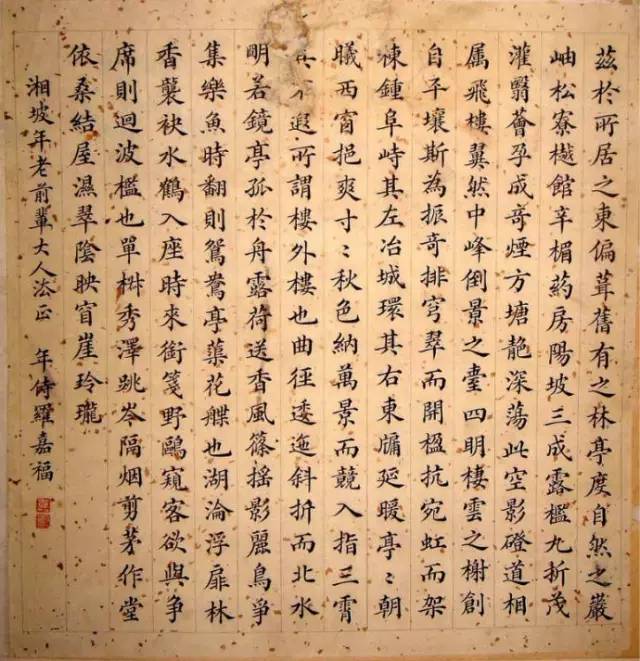 茲於所居之東偏葺舊有之林亭度自然之巖
岫松寮樾館辛楣葯房陽坡三成露檻九折茂
灌翳薈孕成奇煙方塘靘深蕩此空影磴道相
属飛樓翼然中峰倒景之臺四明棲雲之榭創
自平壤斯為振奇排穹翠而開楹抗宛虹而架
棟鍾阜峙其左冶城環其右東牖延暖亭〻朝
曦西窗挹爽寸〻秋色納萬景而競入指三霄
其不遐所謂樓外樓也曲徑逶迤斜折而北水
明若鏡亭孤於舟露荷送香風篠摇影麗鳥爭
集樂魚時翻則鴛鴦亭蕖花艓也湖淪浮扉林
香襲袂水鶴入座時來銜箋野鷗窺客欲與争
席則迴波檻也單椒秀澤跳岑隔烟剪茅作堂
依桑結屋濕翠陰映窅崖玲瓏
湘坡年老前輩大人法正 年侍羅嘉福